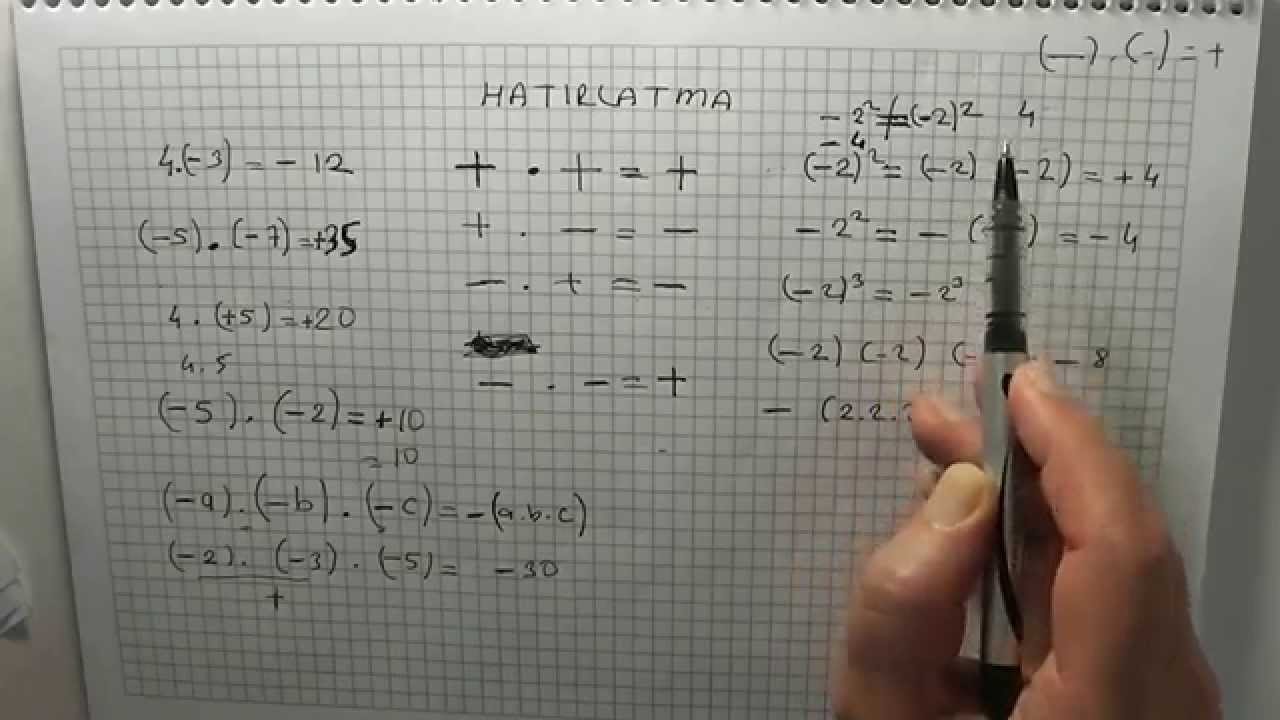 (—) . (-) = +
HATIRLATMA
4.(-3) = - 12
(-5) . (-7) = +35
4 . (+5) = +20
4.5
(-5) . (-2) = +10
= 10
(-a) . (-b) . (-c) = -(a.b.c)
(-2) . (-3) . (-5) = -30
+
+ . + = +
+ . - = -
- . + = -
- . - = +
- 2² ≠ (-2)² 4
- 4
(-2)² = (-2) -2) = +4
- 2² = - ( ) = - 4
(-2)³ = -2³
(-2) (-2) (- - 8
- (2.2.